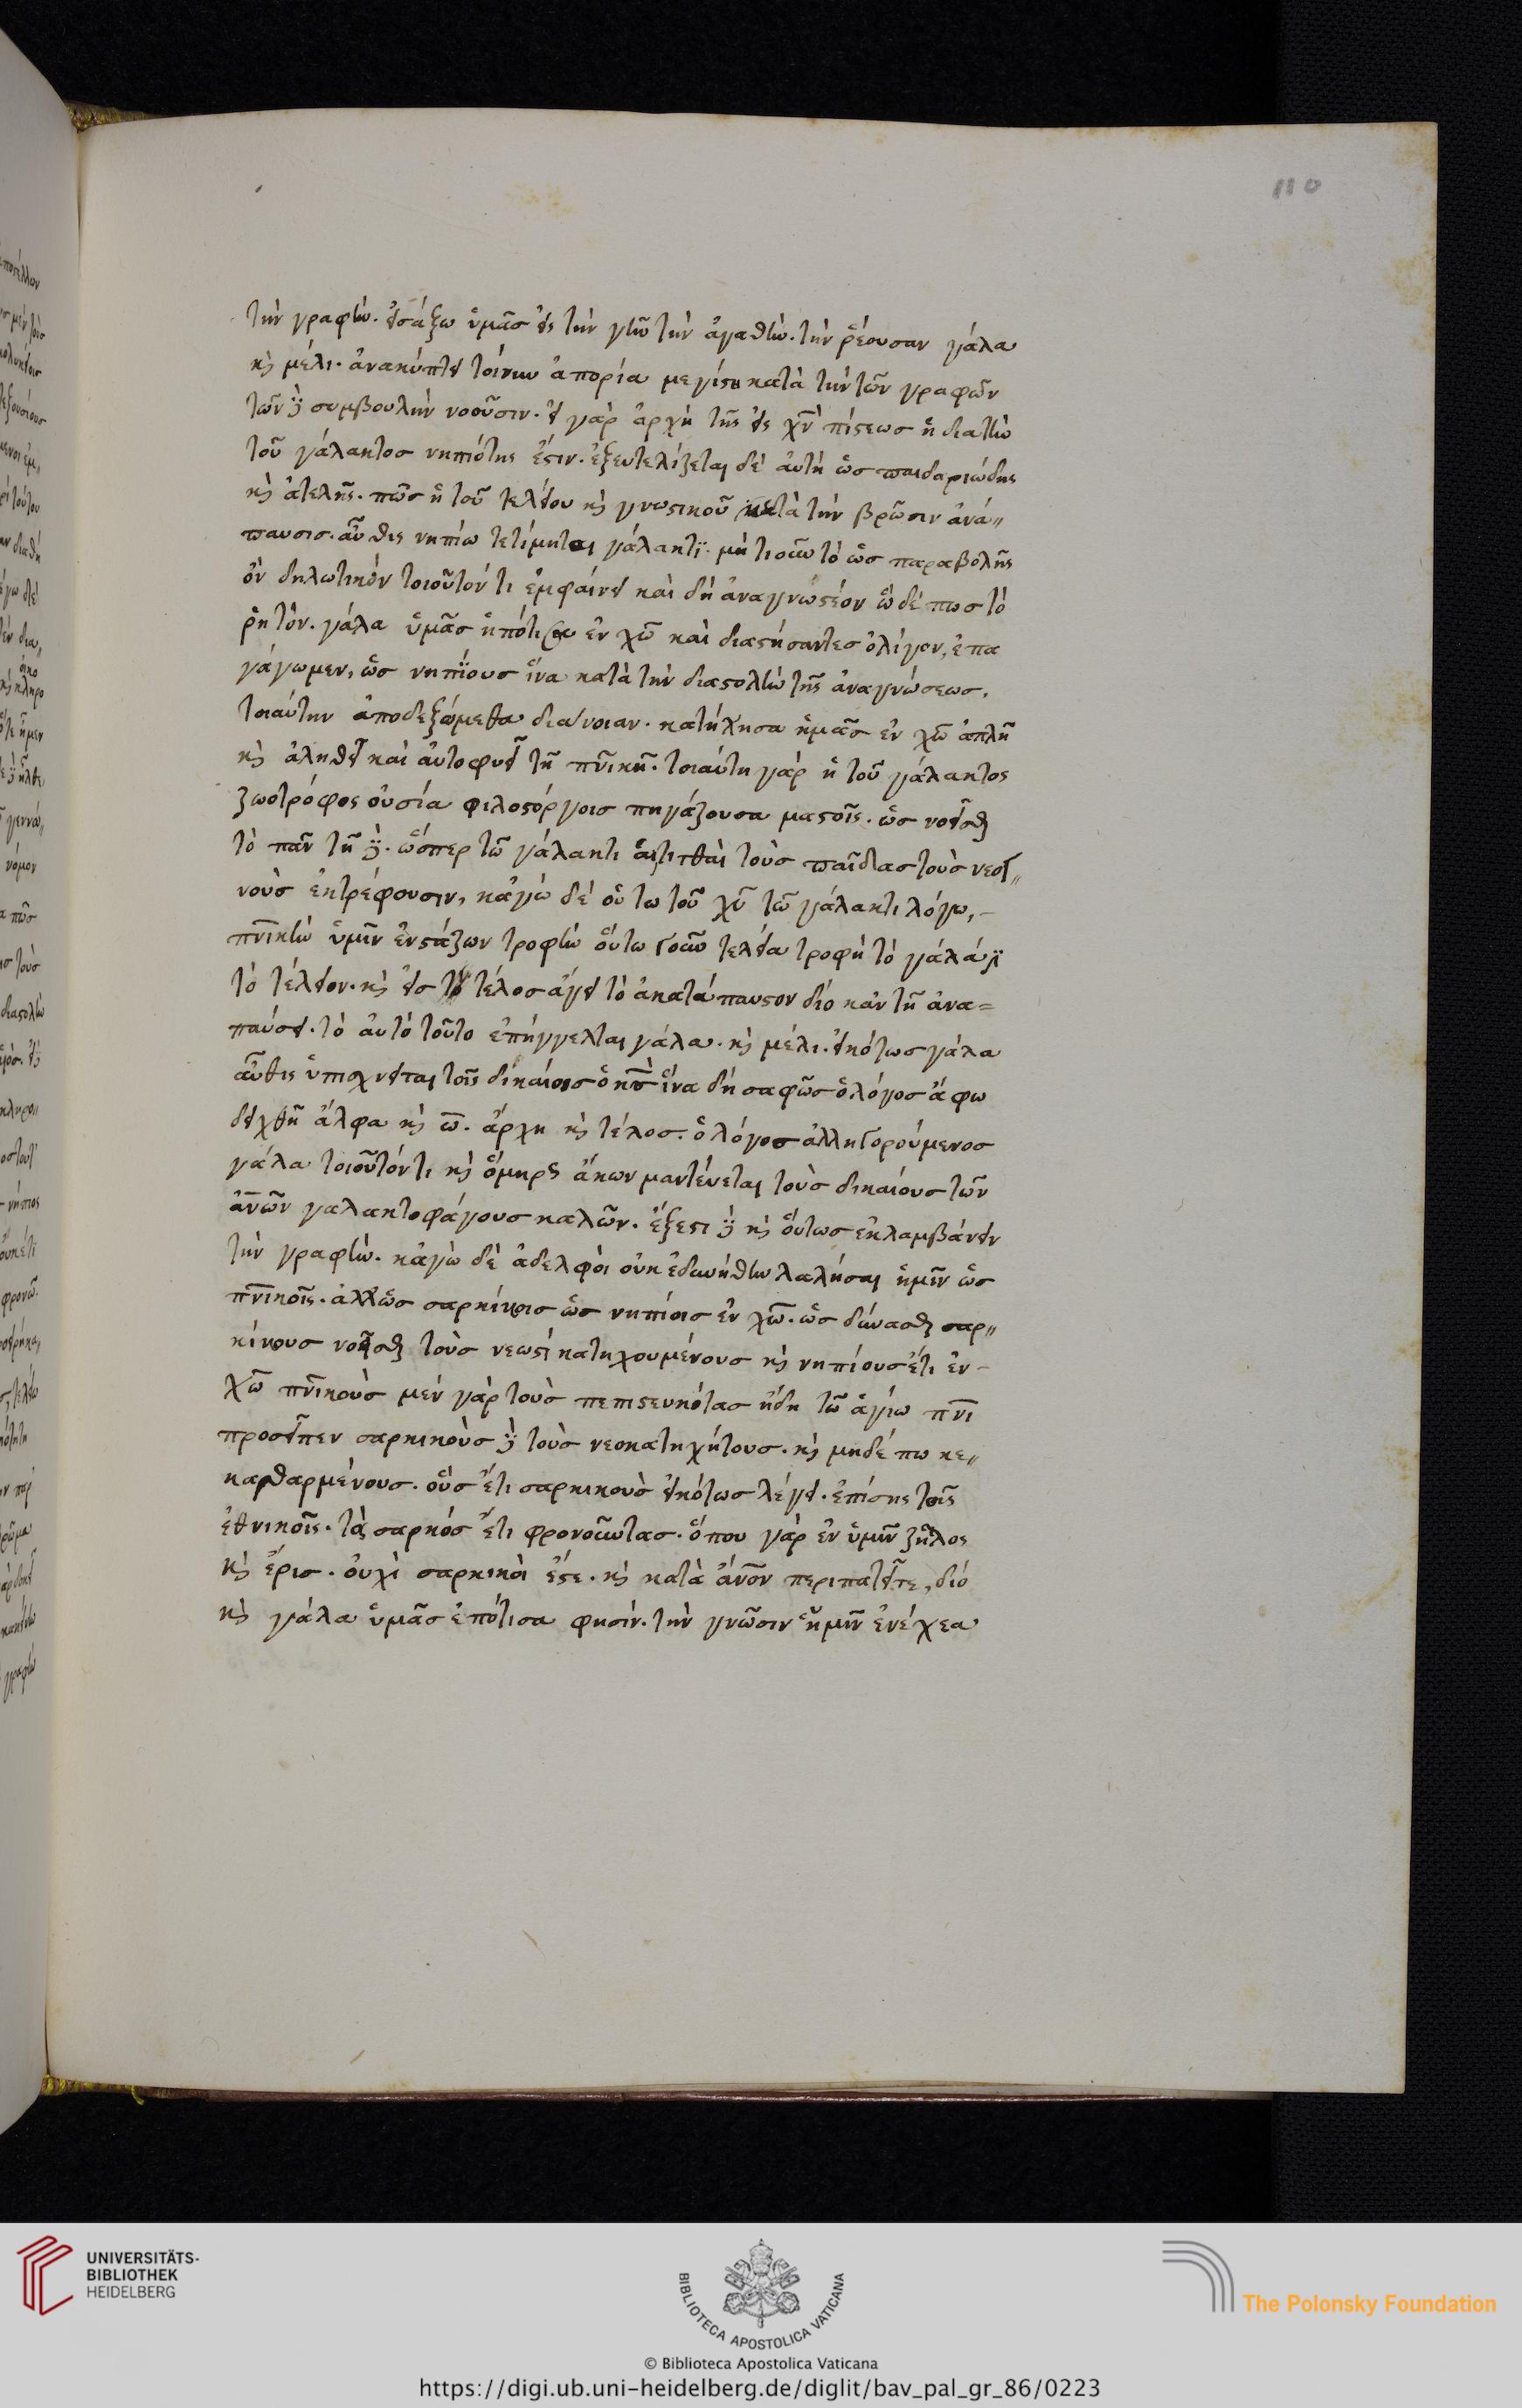 110
τὴν γραφὴν. εἰσάξω ὑμᾶς εἰς τὴν γῆν τὴν ἀγαθὴν. τὴν ῥέουσαν γάλα
κὶ μέλι. ἀνακύπτει τοίνυν ἀπορία μεγίστη κατὰ τὴν τῶν γραφῶν
τῶνδε συμβουλὴν νοοῦσιν. εἰ γὰρ ἀρχὴ τῆς εἰς χν πίστεωσ ἡ διὰ τὴν
τοῦ γάλακτος νηπιότης ἐστιν. ἐξευτελίζεται δὲ αὐτὴ ὡσ παιδαριώδης
κὶ ἀτελὴς. πῶς ἡ τοῦ τελείου κὶ γνωστικοῦ μετὰ τὴν βρῶσιν ἀνά〃
παυσισ. αὖθις νηπίω τετίμηται γάλακτϊ. μή τι οὖν τὸ ὡσ παραβολῆς
ὂν δηλωτικὸν τοιοῦτόν τι ἐμφαίνει καὶ δὴ ἀναγνωστέον ὧδέ πωσ τὸ
ῥητὸν. γάλα ὑμᾶσ ἠπότισα ἐν χω καὶ διαστήσαντεσ ὀλίγον, ἐπα
γάγωμεν, ὡσ νηπΐουσ ἵνα κατὰ τὴν διαστολὴν τῆς ἀναγνώσεωσ,
τοιαύτην ἀποδεξώμεθα διάνοιαν. κατήχησα ἡμᾶσ ἐν χω ἁπλῆ
κὶ ἀληθεῖ καὶ αὐτοφυεῖ τῆ πνικῆ. τοιαύτη γὰρ ἡ τοῦ γάλακτος
ζωοτρόφος οὐσία φιλοστόργοισ πηγάζουσα μαστοῖς. ὡσ νοεῖσθαι
τὸ πᾶν τῆδε. ὥσπερ τῶ γάλακτι αἱ τιτθαὶ τοὺσ παῖδασ τοὺσ νεογ〃
νοὺσ ἐκτρέφουσιν, κἀγὼ δὲ οὕτω τοῦ χυ τῶ γάλακτι λόγω, -
πνικὴν ὑμῖν ἐνστάζων τροφὴν οὕτω γοῦν τελεία τροφὴ τὸ γάλά ἐστι
τὸ τέλειον. κὶ εἰσ τὸ τέλοσ ἄγει τὸ ἀκατάπαυστον διὸ κἀν τῆ ἀνα=
παύσει. τὸ αὐτὸ τοῦτο ἐπήγγελται γάλα. κὶ μέλι. εἰκότωσ γάλα
αὖθις ὑπισχνεῖται τοῖς δικαίοισ ὁ κσ ἵνα δὴ σαφῶσ ὁ λόγοσ ἄμφω
δειχθῆ ἄλφα κὶ ω. ἀρχη κὶ τέλοσ. ὁ λόγοσ ἀλληγορούμενοσ
γάλα τοιοῦτόν τι κὶ ὅμηρς ἄκων μαντεύεται τοὺσ δικαίουσ τῶν
ανων γαλακτοφάγουσ καλῶν. ἔξεστι δὲ κὶ οὕτωσ ἐκλαμβάνειν
τὴν γραφὴν. κἀγὼ δὲ ἀδελφὸι οὐκ ἐδυνήθην λαλῆσαι ἡμῖν ὡσ
πνικοῖς. ἀλλ' ὡσ σαρκίνοισ ὡσ νηπίοισ ἐν χω. ὡσ δύνασθαι σαρ〃
κίνουσ νοεῖσθαι τοὺσ νεωστὶ κατηχουμένουσ κὶ νηπίουσ ἔτι ἐν -
χω πνικοὺσ μὲν γὰρ τοὺσ πεπιστευκότασ ἤδη τῶ ἁγίω πνι
προσεῖπεν σαρκικοὺσ δὲ τοὺσ νεοκατηχήτουσ. κὶ μηδέ πω κε〃
καθαρμένουσ. οὓσ ἔτι σαρκικοὺσ εἰκότωσ λέγει. ἐπίσης τοῖς
ἐθνικοῖς. τὰ σαρκόσ ἔτι φρονοῦντασ. ὅπου γὰρ ἐν ὑμῖν ζῆλος
κὶ ἔρισ. οὐχὶ σαρκικὸι ἐστε. κὶ κατὰ ανον περιπατεῖτε, διὸ
κὶ γάλα ὑμᾶσ ἐπότισα φησίν. τὴν γνῶσιν ἡμῖν ἐνέχεα
UNIVERSITÄTS-
BIBLIOTHEK
HEIDELBERG
BIBLIOTECA APOSTOLICA VATICANA
The Polonsky Foundation
© Biblioteca Apostolica Vaticana
https://digi.ub.uni-heidelberg.de/diglit/bav_pal_gr_86/0223